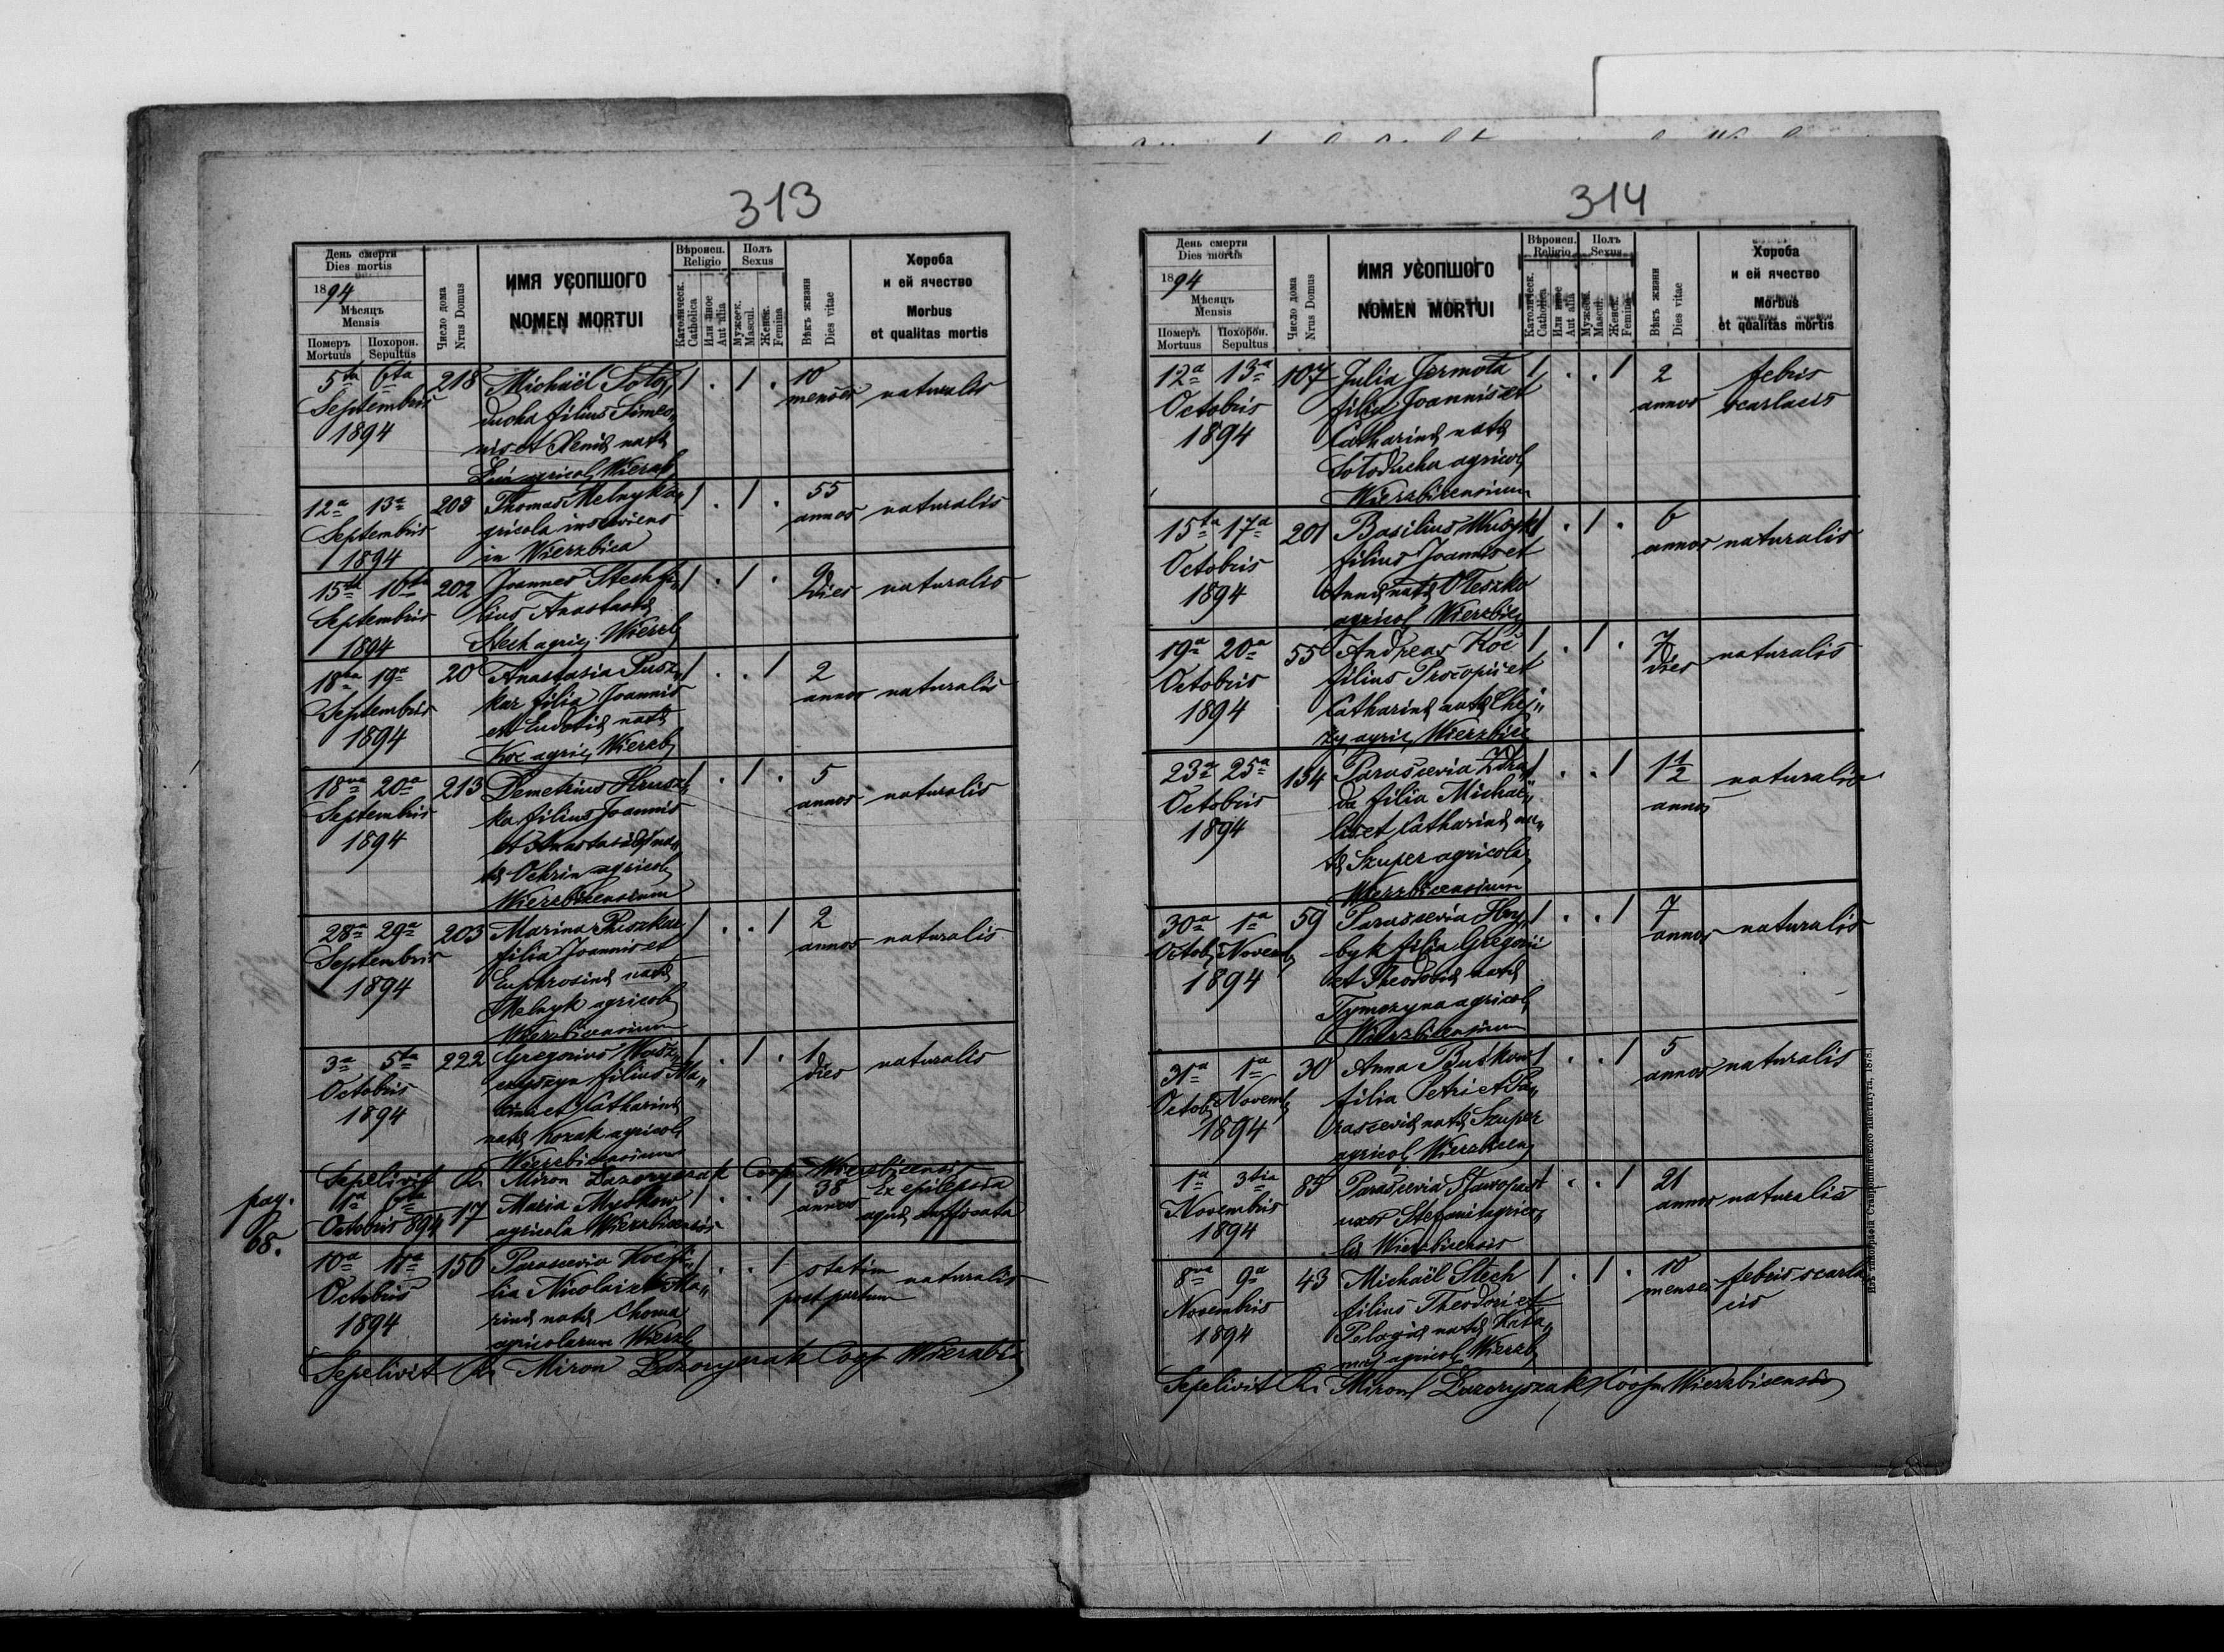 313
День смерти
Dies mortis
1894
Мѣсяцъ
Mensis
Померъ
Mortuus
Похорон.
Sepultus
Число дома
Nrus Domus
ИМЯ УСОПШОГО
NOMEN MORTUI
Вѣроисп.
Religio
Католическ.
Catholica
Или иное
Aut alia
Полъ
Sexus
Мужеск.
Mascul.
Женск.
Femina
Вѣкъ жизни
Dies vitae
Хороба
и ей ячество
Morbus
et qualitas mortis
5ta 6ta 218 Michaël Soto„ 1 . 1 . 10
Septembris ducha filius Simeo„ menses naturalis
1894 nis et Xeniæ natæ
agricol. Wierzb.
12a 13a 208 Thomas Melnyk a„ 1 . 1 . 55
Septembris gricola inserviens annos naturalis
1894 in Wierzbica
15ta 16ta 202 Joannes Stech fi„ 1 . 1 . 9
Septembris lius Anastasiæ dies naturalis
1894 Stech agric. Wierzb.
18va 19a 20 Anastasia Pusz„ 1 . . 1 2
Septembris kar filia Joannis annos naturalis
1894 et Eudotiæ natæ
Koc agric. Wierzb.
18va 20a 213 Demetrius Hrusz„ 1 . 1 . 5
Septembris ka filius Joannis annos naturalis
1894 et Anastasiæ na„
tæ Ochrin agricol.
Wierzbicensium
28va 29a 203 Marina Puszkar 1 . . 1 2
Septembris filia Joannis et annos naturalis
1894 Euphrosinæ natæ
Melnyk agricol.
Wierzbicensium
3a 5ta 222 Gregorius 1 . 1 . 1
Octobris filius Ma„ dies naturalis
1894 et Catharinæ
natæ Kozak agricol.
Wierzbicensium
Sepelivit R. Miron Lazoryszak Coop. Wierzbicensis
pag.
68.
1a 6ta 17 Maria Myskow 1 . . 1 38 Ex epilepsia
Octobris 894 agricola Wierzbicensis annos aquâ suffocata
10a 11a 156 Parascevia Koc fi„ 1 . . 1 statim
Octobris lia Nicolai et Ma„ post partum naturalis
1894 rinæ natæ Choma
agricolarum Wierzb.
Sepelivit R. Miron Lazoryszak Coop. Wierzbic.
314
День смерти
Dies mortis
1894
Мѣсяцъ
Mensis
Померъ
Mortuus
Похорон.
Sepultus
Число дома
Nrus Domus
ИМЯ УСОПШОГО
NOMEN MORTUI
Вѣроисп.
Religio
Католическ.
Catholica
Или иное
Aut alia
Полъ
Sexus
Мужеск.
Mascul.
Женск.
Femina
Вѣкъ жизни
Dies vitae
Хороба
и ей ячество
Morbus
et qualitas mortis
12a 13a 107 Julia Jermoła 1 . . 1 2 febris
Octobris filia Joannis et annos scarlacis
1894 Catharinæ natæ
Sotoducha agricol.
Wierzbicensium
15ta 17a 201 Basilius 1 . 1 . 6
Octobris filius Joannis et annos naturalis
1894 Annæ natæ Oleszko
agricol. Wierzbic.
19a 20a 55 Andreas Koc 1 . 1 . 7
Octobris filius Procopii et dies naturalis
1894 Catharinæ natæ
agric. Wierzbic.
23a 25a 134 Parascevia Zdra„ 1 . . 1 1½ naturalis
Octobris da filia Michaë„ annos
1894 lis et Catharinæ na„
tæ Szuper agricolar.
Wierzbicensium
30a 1a 59 Parascevia Hry„ 1 . . 1 7
Octob. Novemb. byk filia Gregorii annos naturalis
1894 et Theodosiæ natæ
Tymczyna agricol.
Wierzbicensium
31a 1a 30 Anna Buśkow 1 . . 1 5
Octob. Novemb. filia Petri et Pa„ annos naturalis
1894 rasceviæ natæ Szuper
agricol. Wierzbicen.
1a 3tia 85 Parascevia Staropast . . 1 21
Novembris uxor Stefani agrico„ annos naturalis
1894 læ Wierzbicensis
8va 9a 43 Michaël Stech 1 . 1 . 10 febris scarla
Novembris filius Theodori et menses cis
1894 Pelagiæ natæ
agricol. Wierzb.
Sepelivit R. Miron Lazoryszak Coop. Wierzbicensis
Изъ типографіи Ставропигійского Института, 1878.